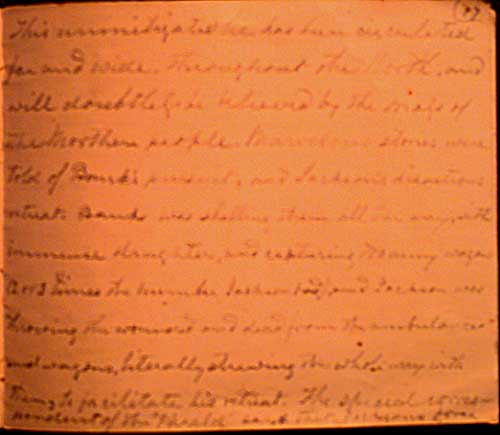 This unmitigated lie has been circulated
far and wide, throughout the North, and
will doubtless be believed by the mass of
the Northern people. Marvelous stories were
told of Banks pursuit, and Jackson's disastrous
retreat. Banks was shelling them all the way, with
immense slaughter, and capturing so many wagons
2 or 3 times the number Jackson had, and Jackson was
throwing the wounded and dead from the ambulances
and wagons, literally strewing the whole way with
them, to facilitate his retreat. The special corres-
pondent of the "Herald" that Jacksons